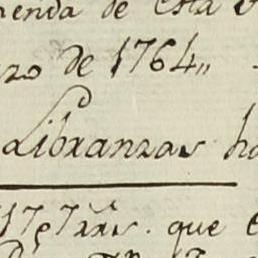 menda de esta
zo de 1764,,
Libranzas ha
que